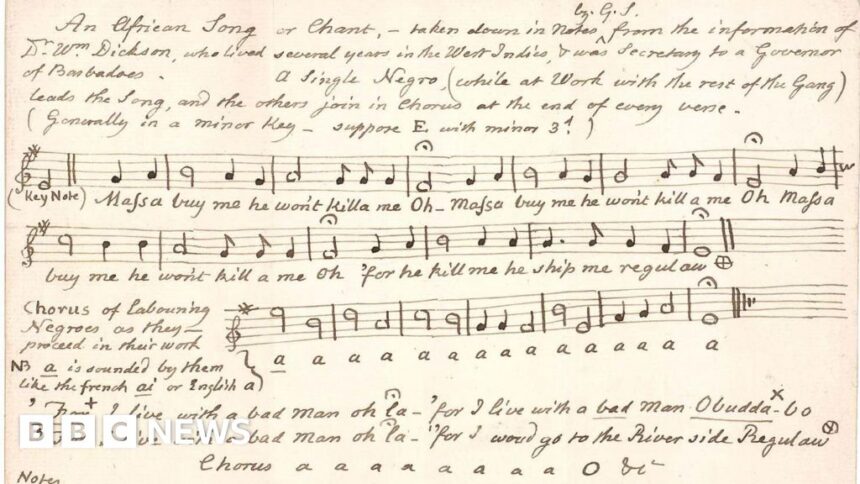 by G. S.
An African Song or Chant, – taken down in Notes, from the information of
Dr. Wm. Dickson, who lived several years in the West Indies, & was Secretary to a Governor
of Barbadoes. A Single Negro, (while at Work with the rest of the Gang)
leads the Song, and the others join in Chorus at the end of every verse.
(Generally in a minor Key – suppose E with minor 3d.)
(Key Note) Maſsa buy me he won't killa me Oh – Maſsa buy me he won't kill a me Oh Maſsa
buy me he won't kill a me Oh 'for he kill me he ship me regulaw ⊕
Chorus of Labouring
Negroes as they –
proceed in their work
a a a a a a a a a
NB a is sounded by them
like the french ai or English a)
I live with a bad man oh la – 'for I live with a bad man Obudda-bo
with a bad man oh la – 'for I woud go to the River side Regulaw ⊗
Chorus a a a a a a a O &c
BBC NEWS
Notes